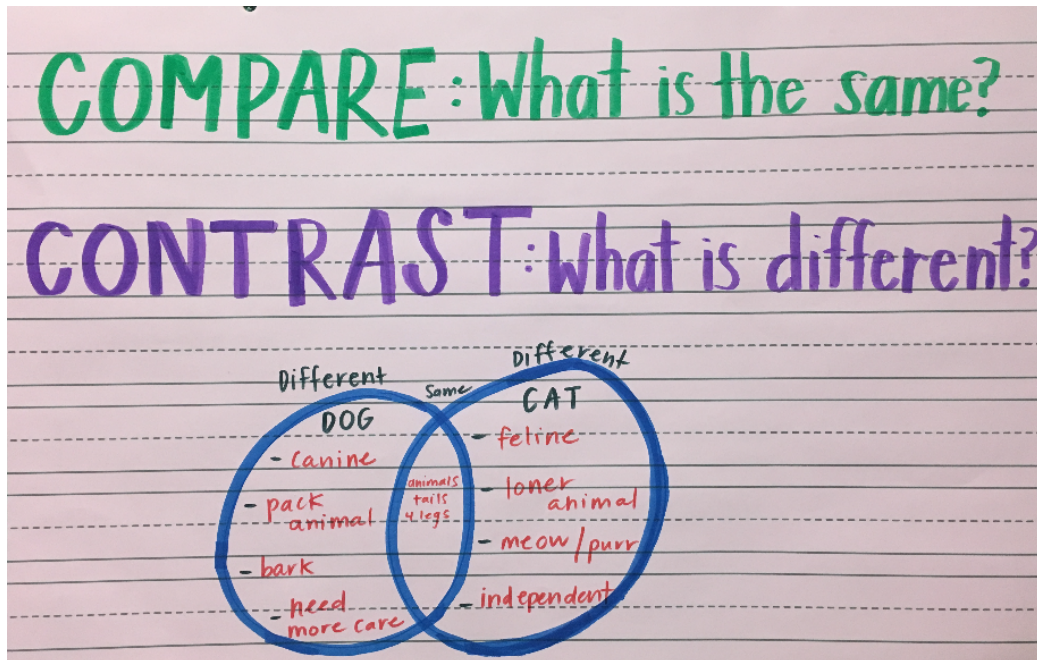 COMPARE: What is the same?
CONTRAST: What is different?
Different
DOG
- canine
- pack
animal
- bark
- need
more care
Same
animals
tails
4 legs
Different
CAT
- feline
- loner
animal
- meow/purr
- independent